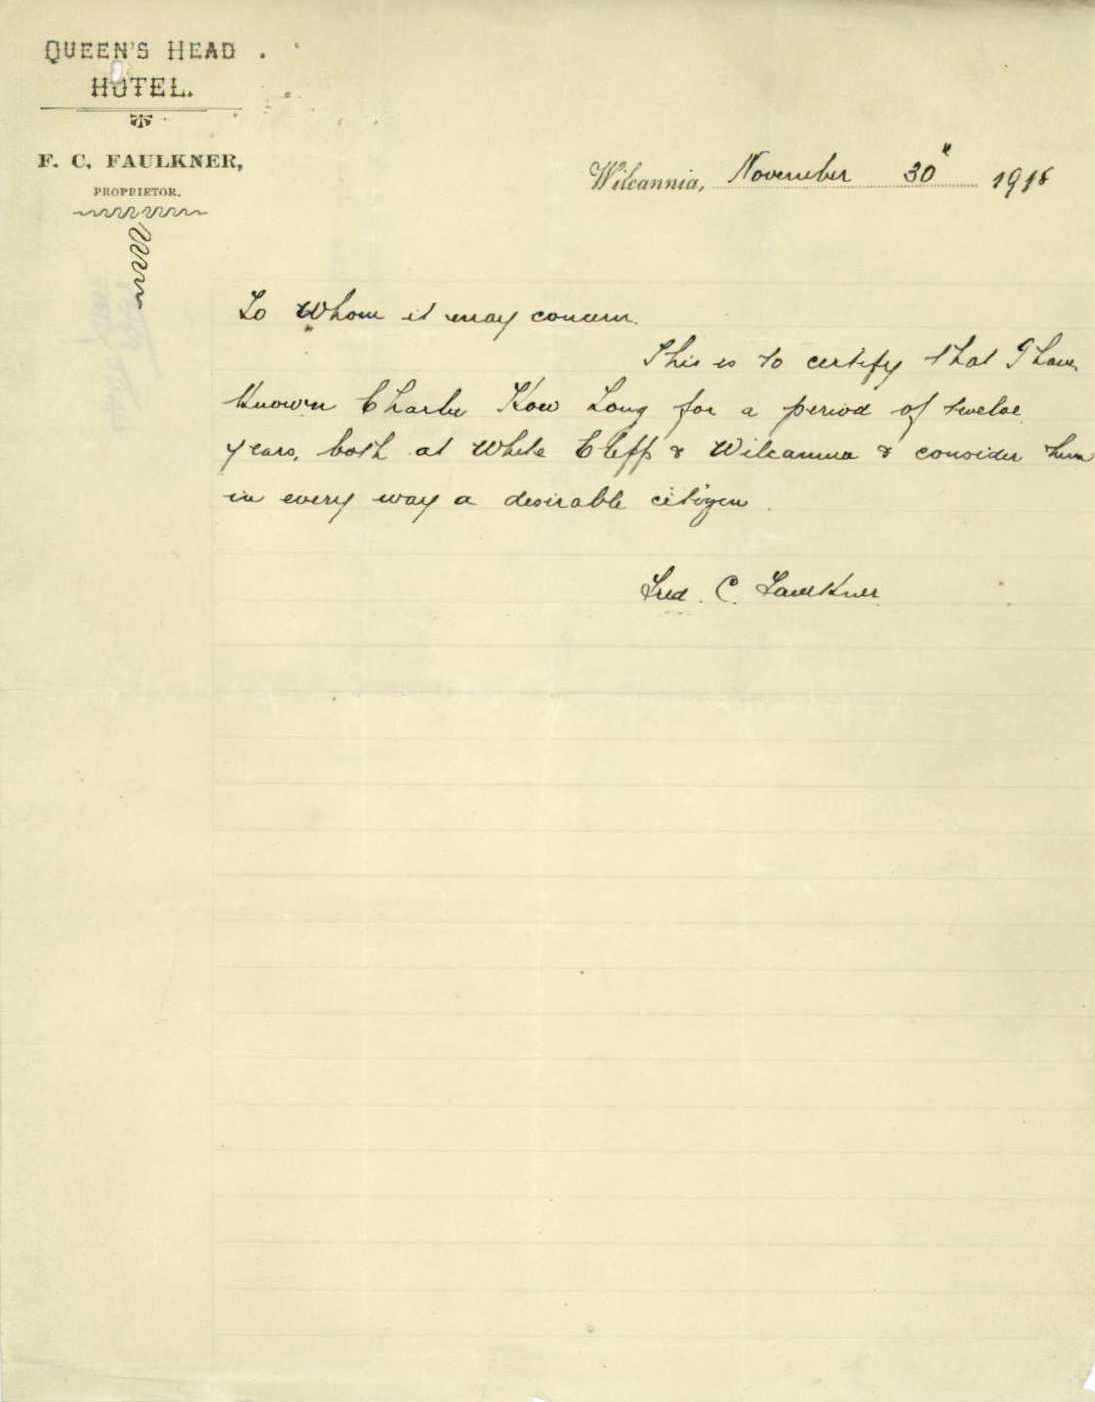 QUEEN'S HEAD
HOTEL.
F. C. FAULKNER,
PROPRIETOR.
Wilcannia, November 30" 1918
To Whom it may concern.
This is to certify that I have
known Charlie How Long for a period of twelve
years, both at White Cliffs & Wilcannia & consider him
in every way a desirable citizen.
Fred. C. Faulkner